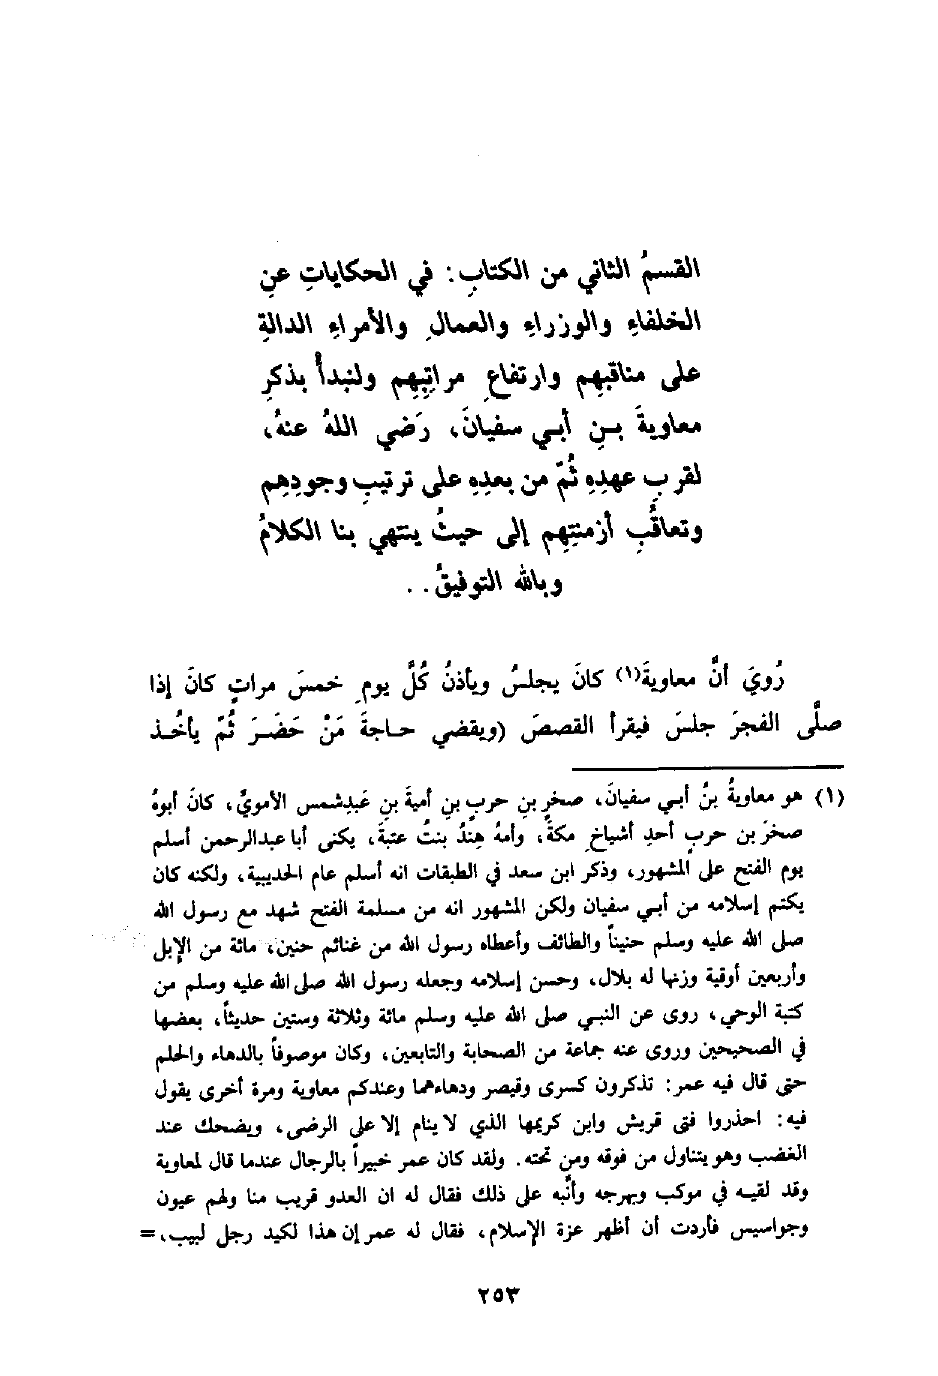 القسمُ الثاني من الكتابِ: في الحكاياتِ عنِ
الخلفاءِ والوزراءِ والعمالِ والأمراءِ الدالةِ
على مناقبِهم وارتفاعِ مراتِبِهِم ولنبدأُ بذكرِ
معاويةَ بنِ أبي سفيانَ، رَضي اللهُ عنهُ،
لقربِ عهدِهِ ثُمّ من بعدِهِ على ترتيبِ وجودِهِم
وتعاقُبِ أزمنتِهِم إلى حيثُ ينتهي بنا الكلامُ
وبالله التوفيقُ . .
رُويَ أنَّ معاويةَ(١) كانَ يجلسُ ويأذنُ كُلَّ يومٍ خمسَ مراتٍ كانَ إذا
صلَّى الفجرَ جلسَ فيقرأ القصصَ (ويقضي حاجةَ مَنْ حَضَرَ ثُمّ يأخُذ
(١) هو معاويةُ بنُ أبي سفيانَ، صخرِ بنِ حربِ بنِ أميةَ بنِ عَبدِشمس الأمويُ، كانَ أبوهُ
صخرَ بن حربٍ أحدِ أشياخِ مكةَ، وأمهُ هِندُ بنتُ عتبةَ، يكنى أبا عبدالرحمن أسلم
يوم الفتح على المشهور، وذكر ابن سعد في الطبقات انه أسلم عام الحديبية، ولكنه كان
يكتم إسلامه من أبي سفيان ولكن المشهور انه من مسلمة الفتح شهد مع رسول الله
صلى الله عليه وسلم حنيناً والطائف وأعطاه رسول الله من غنائم حنين، مائة من الإبل
وأربعين أوقية وزنها له بلال، وحسن إسلامه وجعله رسول الله صلى الله عليه وسلم من
كتبة الوحي، روى عن النبي صلى الله عليه وسلم مائة وثلاثة وستين حديثاً، بعضها
في الصحيحين وروى عنه جماعة من الصحابة والتابعين، وكان موصوفاً بالدهاء والحلم
حتى قال فيه عمر: تذكرون كسرى وقيصر ودهاءهما وعندكم معاوية ومرة أخرى يقول
فيه: احذروا فتى قريش وابن كريمها الذي لا ينام إلا على الرضى، ويضحك عند
الغضب وهو يتناول من فوقه ومن تحته. ولقد كان عمر خبيراً بالرجال عندما قال لمعاوية
وقد لقيه في موكب وبهرجه وأنَّبه على ذلك فقال له ان العدو قريب منا ولهم عيون
وجواسيس فأردت أن أظهر عزة الإسلام، فقال له عمر إن هذا لكيد رجل لبيب، =
٢٥٣